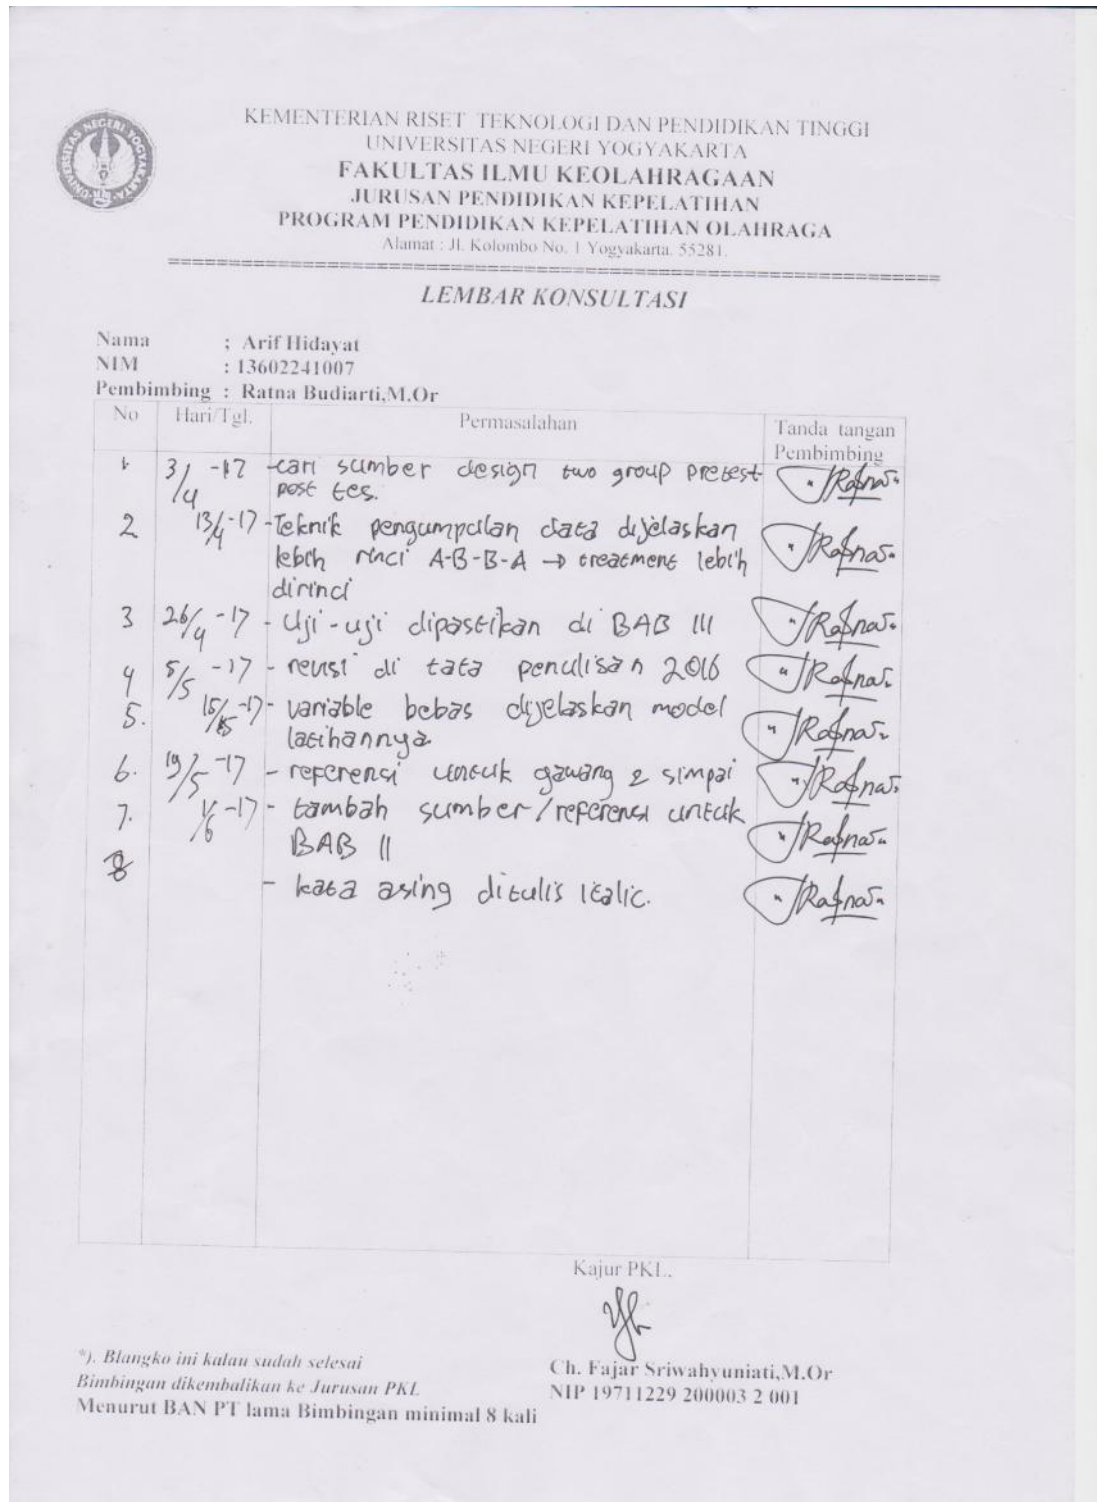 UNIVERSITAS NEGERI YOGYAKARTA
KEMENTERIAN RISET TEKNOLOGI DAN PENDIDIKAN TINGGI
UNIVERSITAS NEGERI YOGYAKARTA
FAKULTAS ILMU KEOLAHRAGAAN
JURUSAN PENDIDIKAN KEPELATIHAN
PROGRAM PENDIDIKAN KEPELATIHAN OLAHRAGA
Alamat : Jl. Kolombo No. 1 Yogyakarta. 55281.
LEMBAR KONSULTASI
Nama ; Arif Hidayat
NIM : 13602241007
Pembimbing : Ratna Budiarti,M.Or
No Hari/Tgl. Permasalahan Tanda tangan
Pembimbing
1 3/4 -17 -cari sumber design two group pretest
post tes.
2 13/4 -17 -Teknik pengumpulan data dijelaskan
lebih rinci A-B-B-A → treatment lebih
dirinci
3 26/4 -17 - Uji-uji dipastikan di BAB III
4 5/5 -17 - revisi di tata penulisan 2016
5. 15/5 -17 - variable bebas dijelaskan model
latihannya.
6. 19/5 -17 - referensi untuk gawang 2 simpai
7. 1/6 -17 - tambah sumber/referensi untuk
BAB II
8
- kata asing ditulis italic.
Kajur PKL.
*). Blangko ini kalau sudah selesai
Bimbingan dikembalikan ke Jurusan PKL
Menurut BAN PT lama Bimbingan minimal 8 kali
Ch. Fajar Sriwahyuniati,M.Or
NIP 19711229 200003 2 001